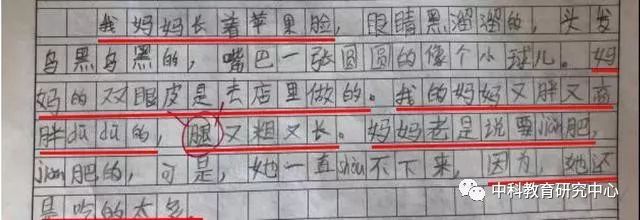 我妈妈长着苹果脸，眼睛黑溜溜的，头发
乌黑乌黑的，嘴巴一张圆圆的像个小球儿。妈
妈的双眼皮是去店里做的。我的妈妈又胖又高
胖dūdū的，腿又粗又长。妈妈老是说要jiǎn肥，
jiǎn肥的，可是，她一直shòu不下来，因为，她还
是吃的太多。
中科教育研究中心